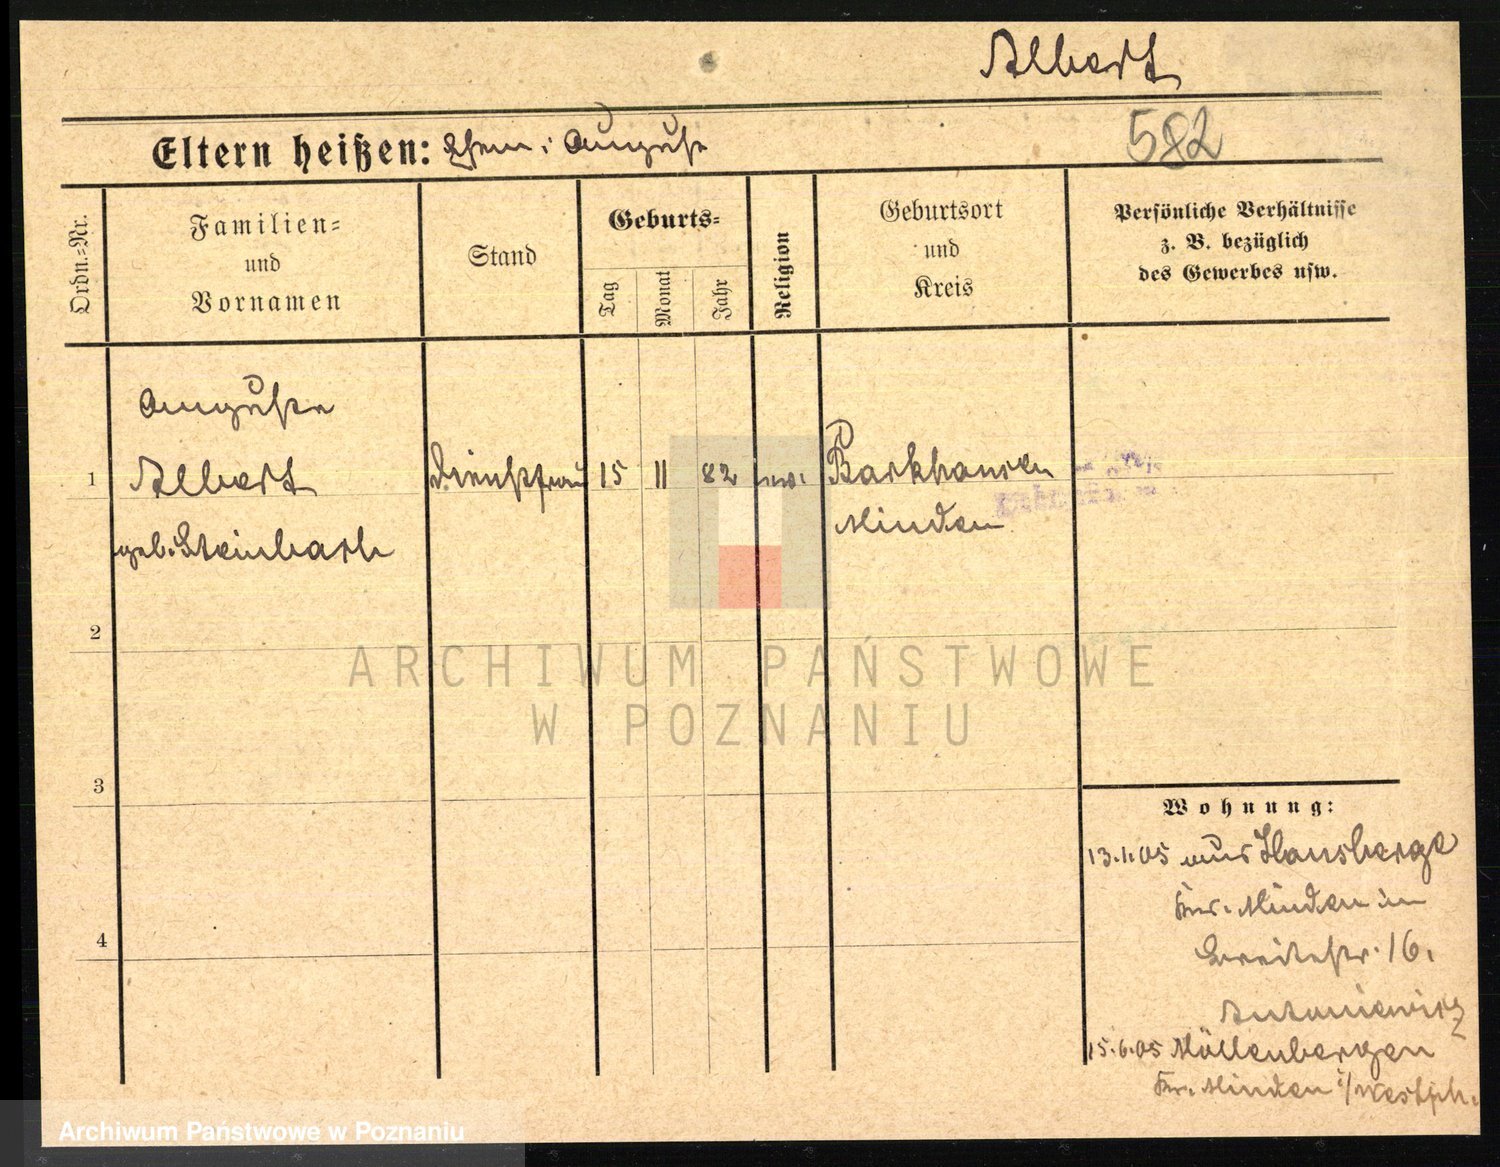 Albert
582
Eltern heißen: Ehem: August
Ordn.=Nr.
Familien=
und
Vornamen
Stand
Geburts=
Tag
Monat
Jahr
Religion
Geburtsort
und
Kreis
Persönliche Verhältnisse
z. B. bezüglich
des Gewerbes usw.
Auguste
1 Albert Dienstfrau 15 11 82 ev. Barkhausen
geb. Steinbach Minden
2
3
4
Wohnung:
13.1.05 aus Hausberge
Kr. Minden in
Breitestr. 16.
Antoniewicz
15.6.05 Möllenbergen
Kr. Minden i/Westph.
ARCHIWUM PAŃSTWOWE
W POZNANIU
Archiwum Państwowe w Poznaniu